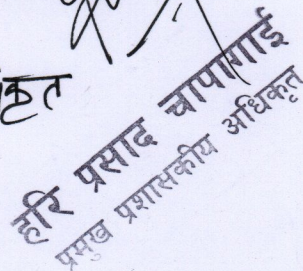 कृत
हरि प्रसाद चापागाई
प्रमुख प्रशासकीय अधिकृत